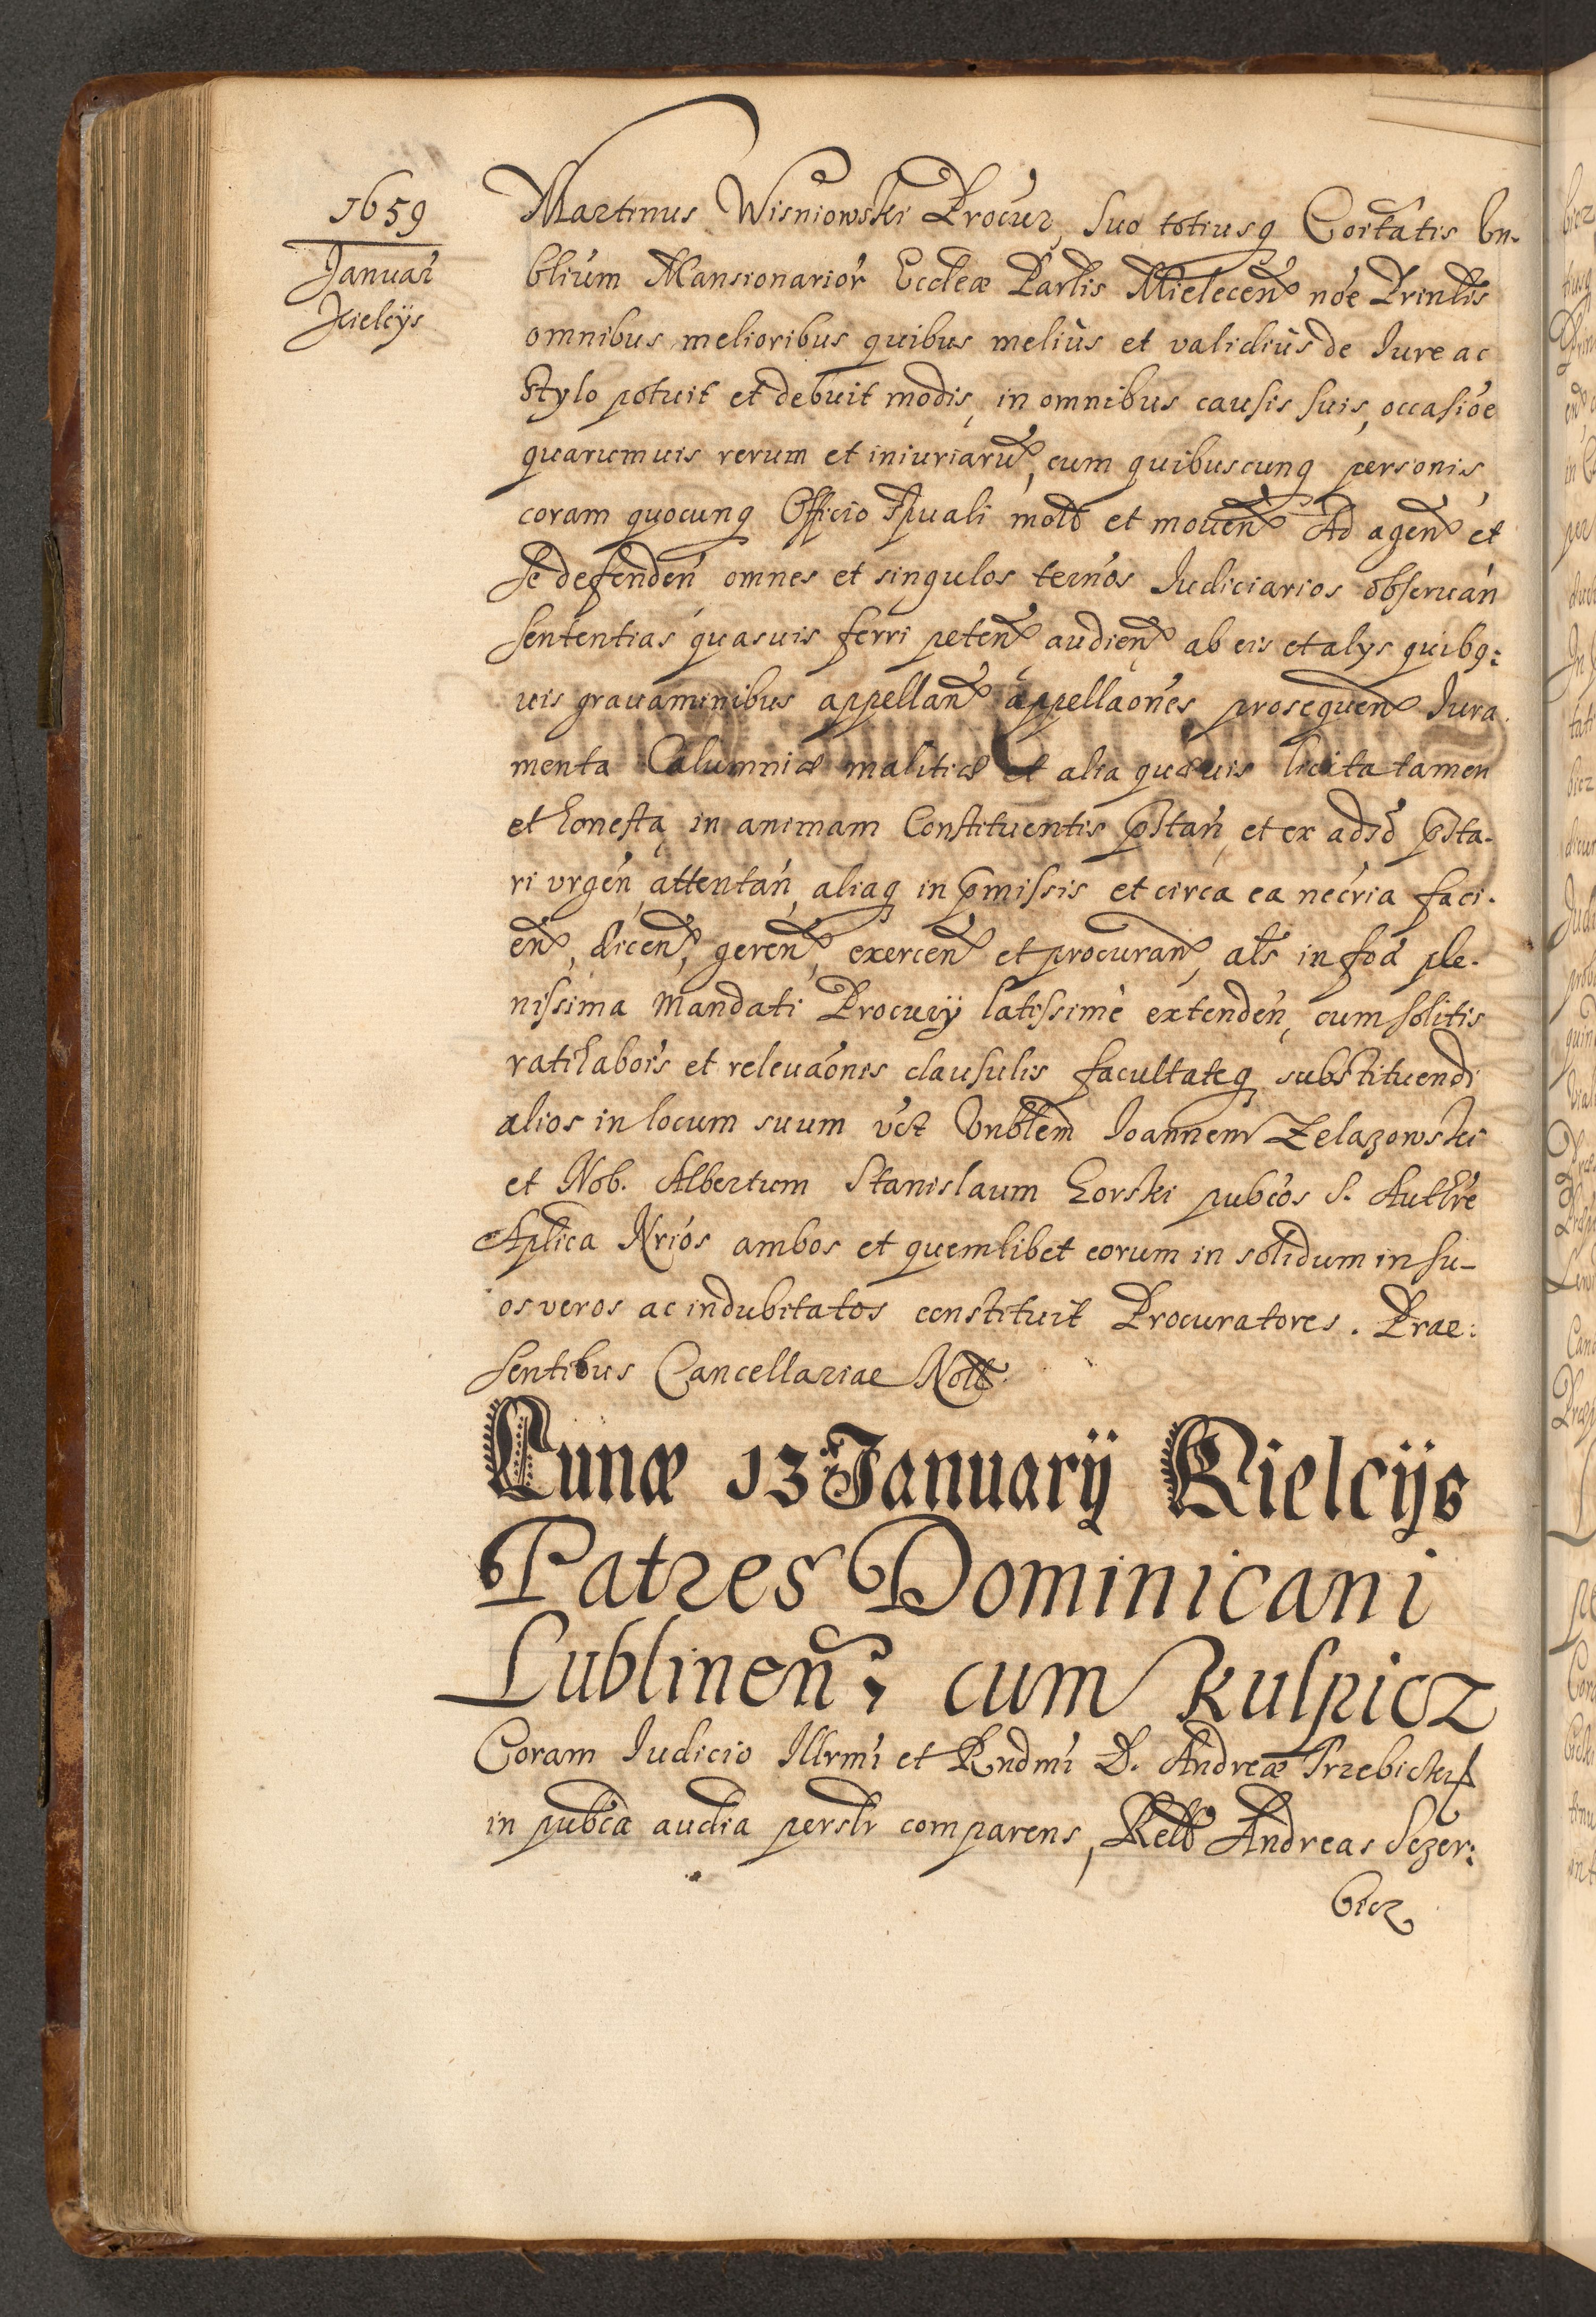 1659
Januar̃
Kielcijs
Martinus Wisniowski Procur̃, suo totiusq Coitãtis Vn-
blium Mansionarior̃ Eccleæ Parlis Mielecen̄ nõe Prinlis
omnibus melioribus quibus meliùs et validiùs de Iure ac
Stylo potuit et debuit modis, in omnibus causis suis, occasiõe
quarumuis rerum et iniuriarũ, cum quibuscunq personis
coram quocunq Officio Spuali mott et mouen̄ Ad agen̄ et
se defenden̄ omnes et singulos terños Iudiciarios obseruan̄
sententias quasuis ferri peten̄ audien̄ ab eis et alys quibq:
uis grauaminibus appellan̄ appellãones prosequen̄ Iura.
menta Calumniæ malitiæ et alia quæuis licita tamen
et honesta in animam Constituentis p̃stan̄, et ex adſo p̃sta-
ri vrgen̄, attentan̄, aliaq in p̃missis et circa ea nec̃ria faci-
en̄, dicen̄, geren̄, exercen̄ et procuran̄, als in foã ple-
nissima Mandati Procurij latissimè extenden̄, cum solitis
ratihabõis et releuãonis clausulis facultateq substituendi
alios in locum suum vct Vnblem Ioannem Zelazowski
et Nob. Albertum Stanislaum Gorski pubcos S. Authrẽ
Aplica Nrios ambos et quemlibet eorum in solidum in su-
os veros ac indubitatos constituit Procuratores. Prae:
sentibus Cancellariae Nott.
Lunæ 13 Januarij Kielcijs
Patres Dominicani
Lublinen̄; cum Kulpicz
Coram Iudicio Illrmi et Rndmi D. Andreæ Trzebicki
in pubca audia perslr comparens, Rell Andreas Sczer:
bicz